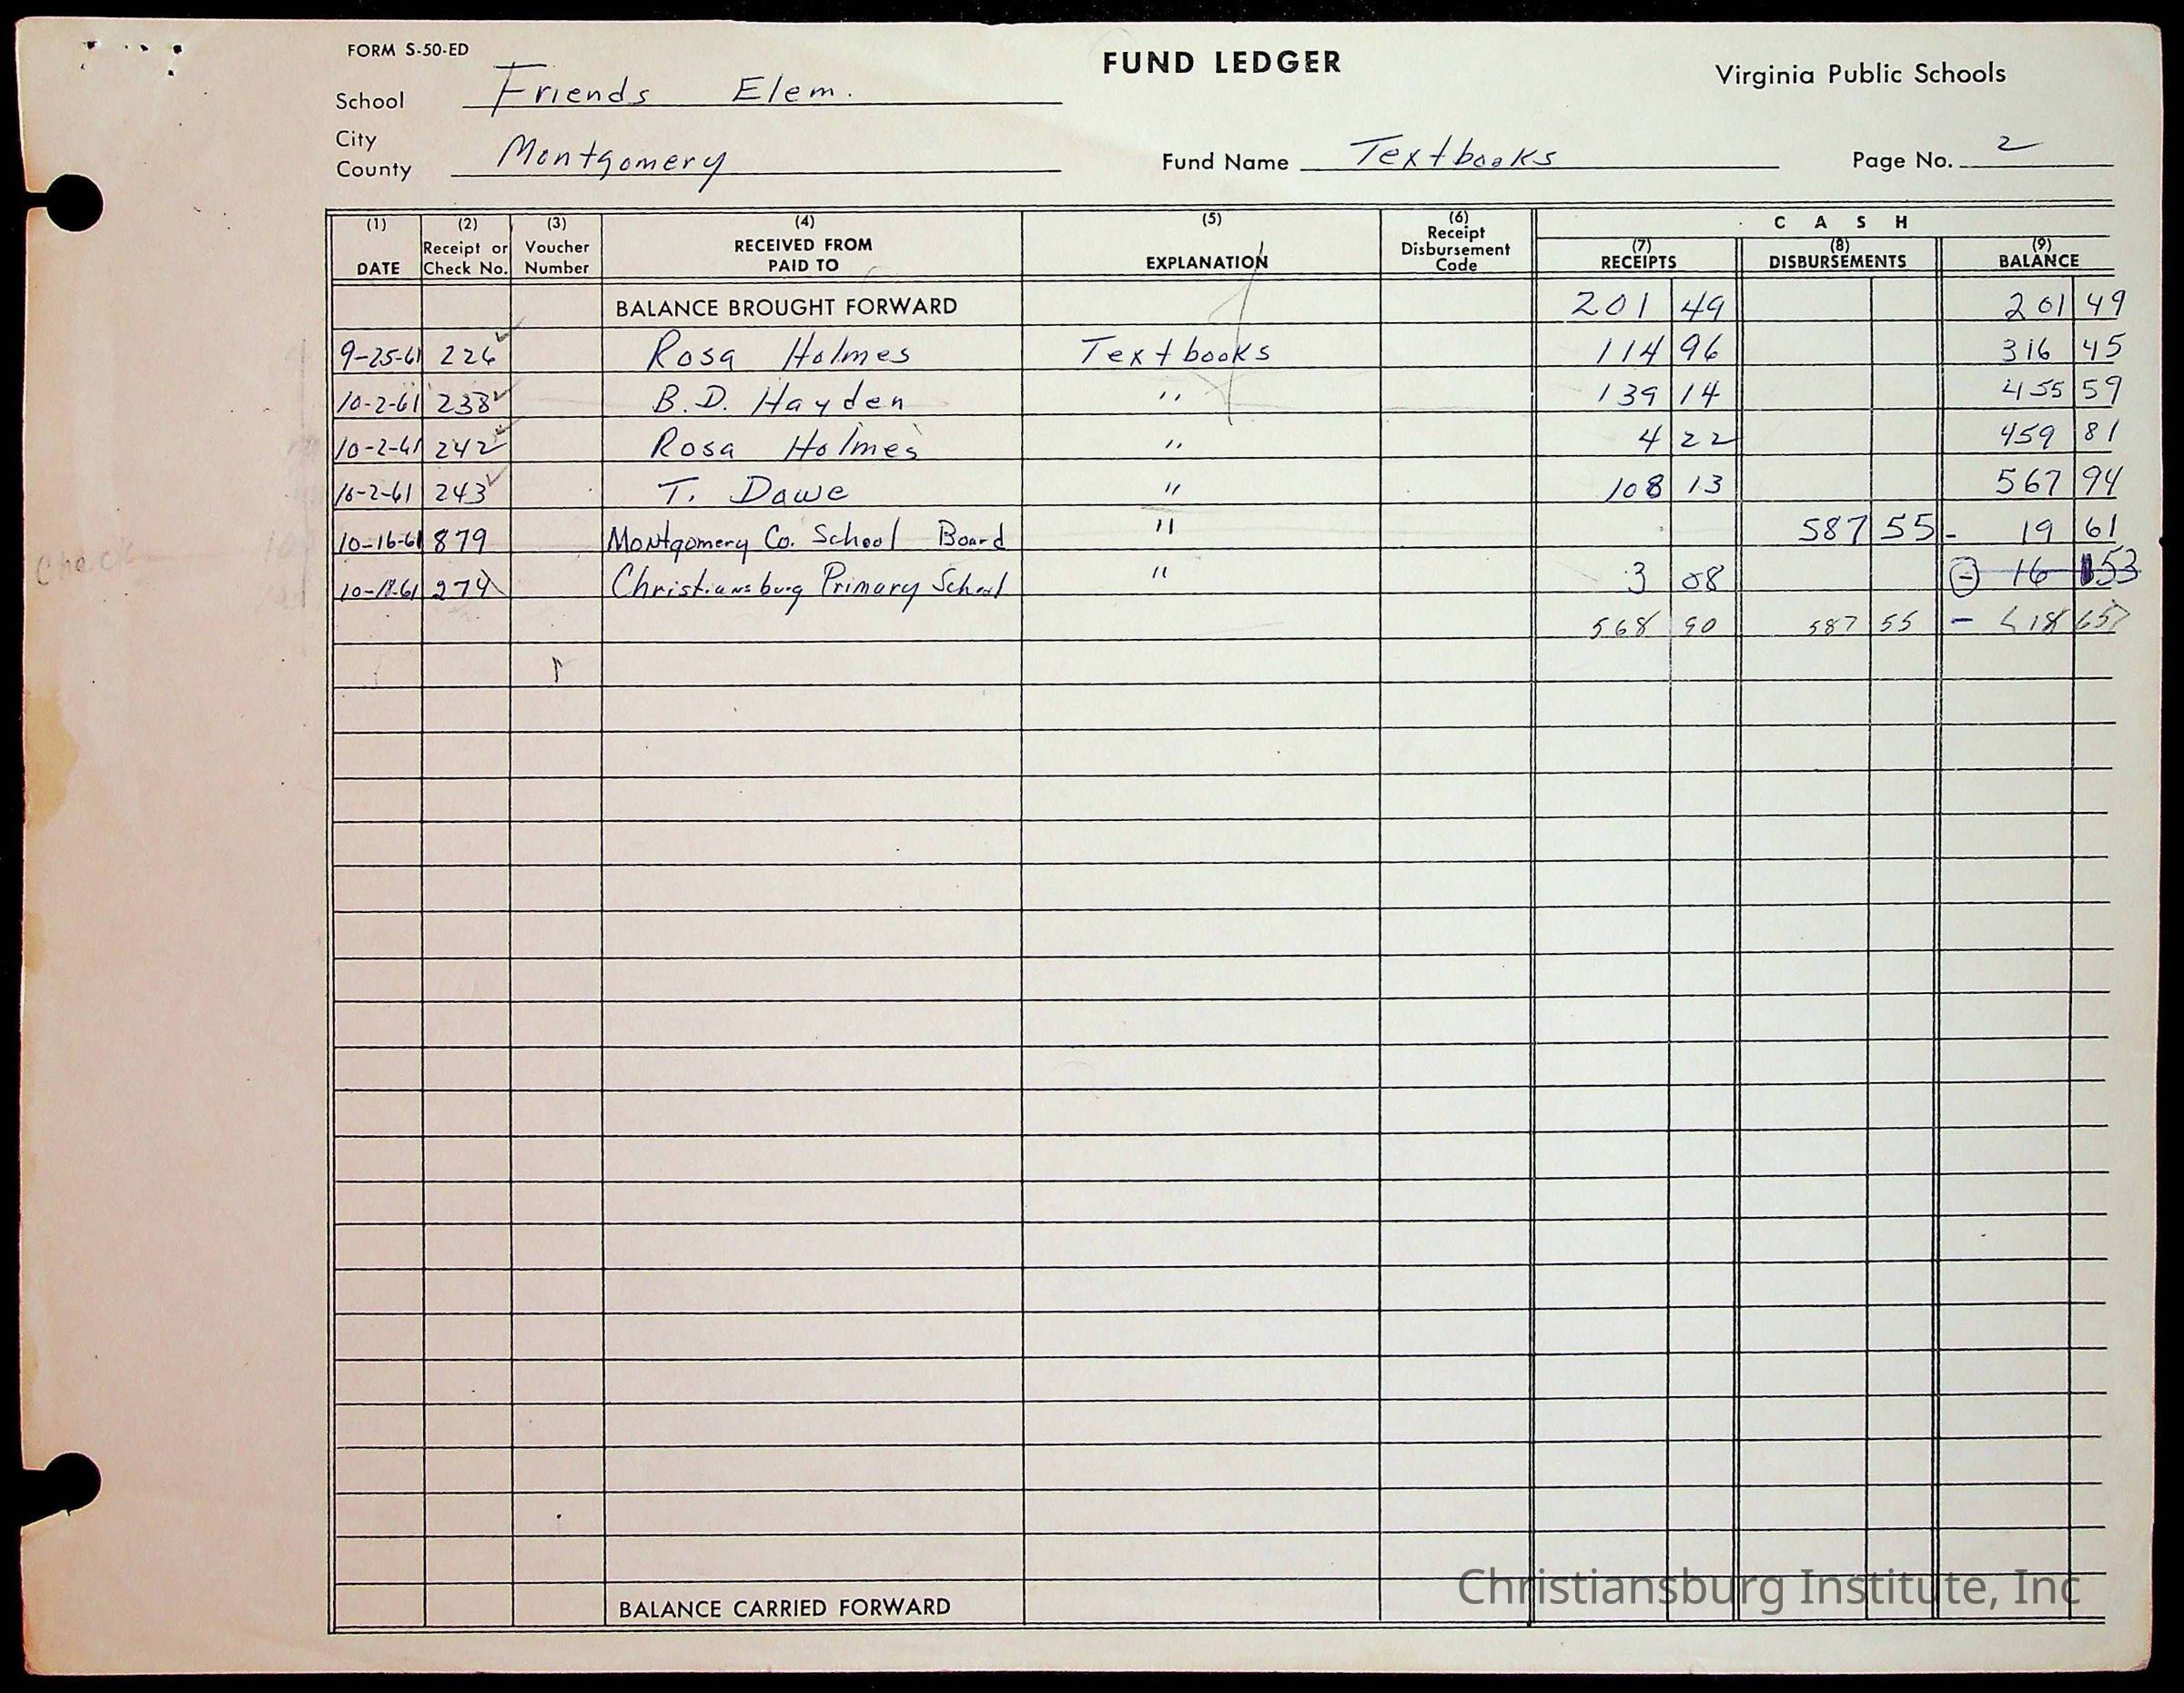 FORM S-50-ED
FUND LEDGER
Virginia Public Schools
School Friends Elem.
City
County Montgomery
Fund Name Textbooks
Page No. 2
(1) (2) (3) (4) (5) (6) C A S H
DATE Receipt or Check No. Voucher Number RECEIVED FROM PAID TO EXPLANATION Receipt Disbursement Code (7) RECEIPTS (8) DISBURSEMENTS (9) BALANCE
BALANCE BROUGHT FORWARD 201 49 201 49
9-25-61 226 Rosa Holmes Textbooks 114 96 316 45
10-2-61 238 B.D. Hayden " 139 14 455 59
10-2-61 242 Rosa Holmes " 4 22 459 81
10-2-61 243 T. Dawe " 108 13 567 94
10-16-61 879 Montgomery Co. School Board " 587 55 - 19 61
Check
10-18-61 274 Christiansburg Primary School " 3 08 - 16 53
568 90 587 55 - 18 65
BALANCE CARRIED FORWARD
Christiansburg Institute, Inc